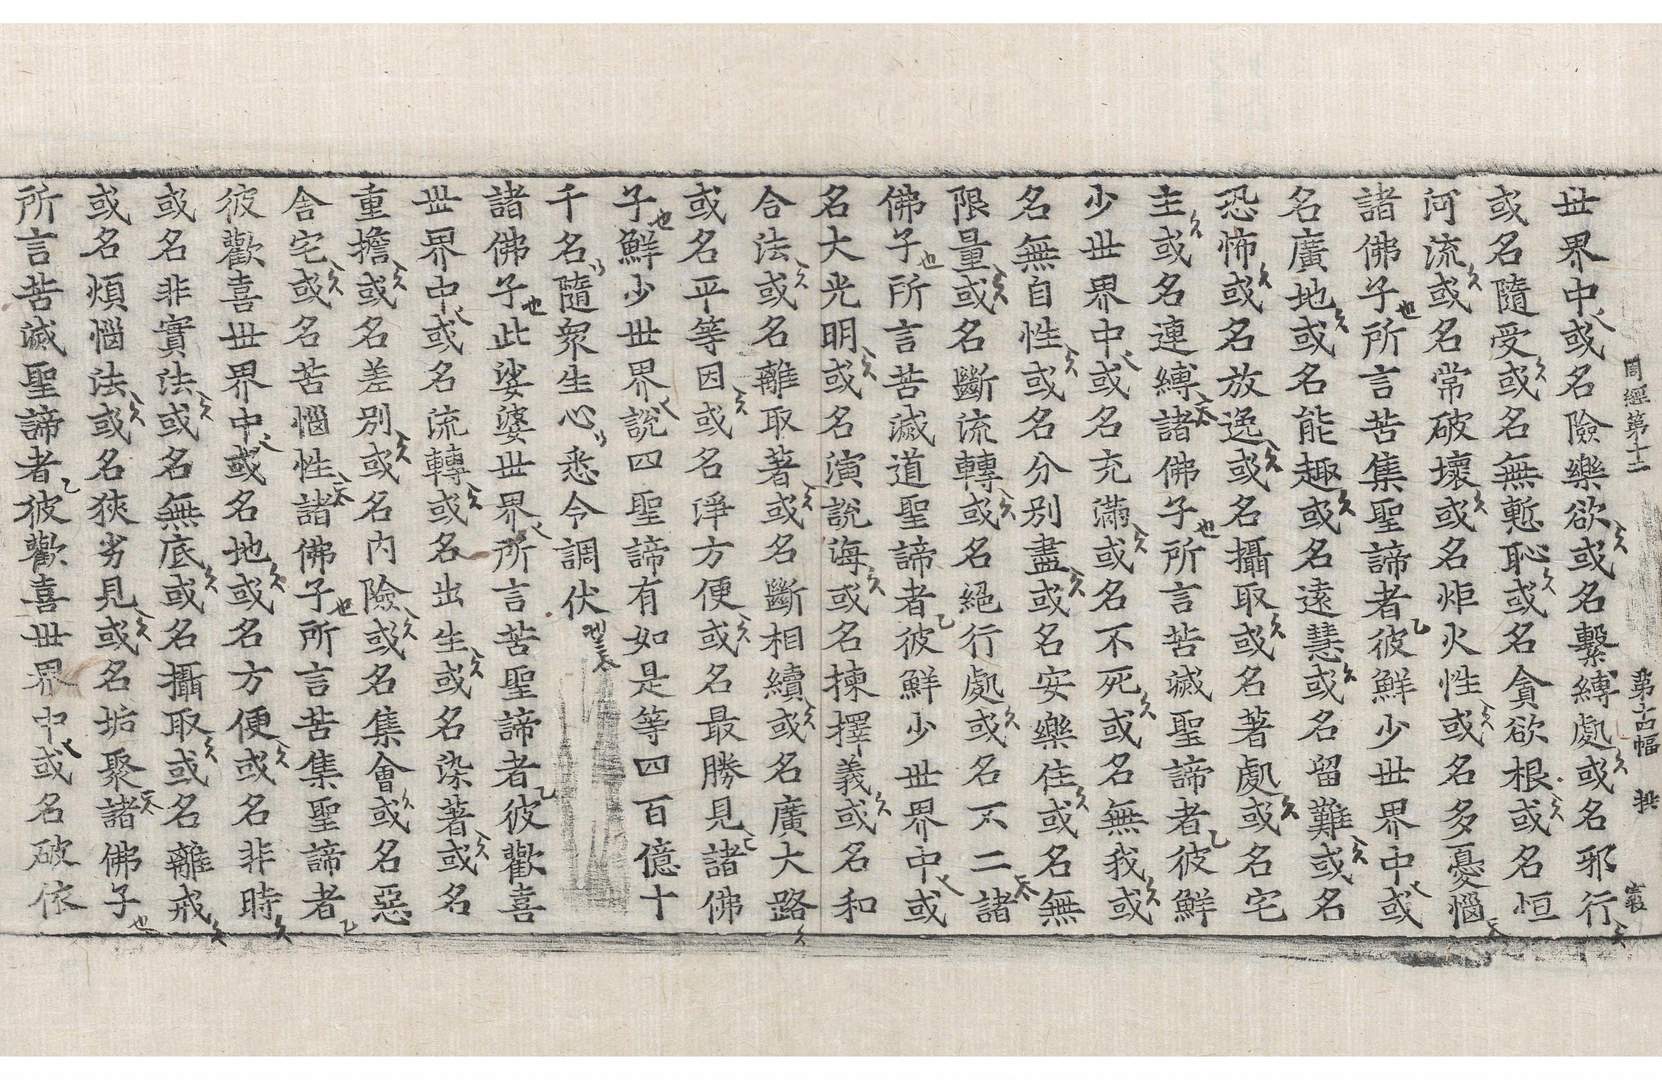 經第十二
世界中或名險樂欲或名繫縛處或名邪行
或名隨受或名無慙恥或名貪欲根或名恒
河流或名常破壞或名炬火性或名多憂惱
諸佛子所言苦集聖諦者彼鮮少世界中或
名廣地或名能趣或名遠慧或名留難或名
恐怖或名放逸或名攝取或名著處或名宅
主或名連縛諸佛子所言苦滅聖諦者彼鮮
少世界中或名充滿或名不死或名無我或
名無自性或名分別盡或名安樂住或名無
限量或名斷流轉或名絕行處或名不二諸
佛子所言苦滅道聖諦者彼鮮少世界中或
名大光明或名演說海或名揀擇義或名和
合法或名離取著或名斷相續或名廣大路
或名平等因或名淨方便或名最勝見諸佛
子鮮少世界說四聖諦有如是等四百億十
千名隨衆生心悉令調伏
諸佛子此娑婆世界所言苦聖諦者彼歡喜
世界中或名流轉或名出生或名染著或名
重擔或名差別或名內險或名集會或名惡
舍宅或名苦惱性諸佛子所言苦集聖諦者
彼歡喜世界中或名地或名方便或名非時
或名非實法或名無底或名攝取或名離戒
或名煩惱法或名狹劣見或名垢聚諸佛子
所言苦滅聖諦者彼歡喜世界中或名破依